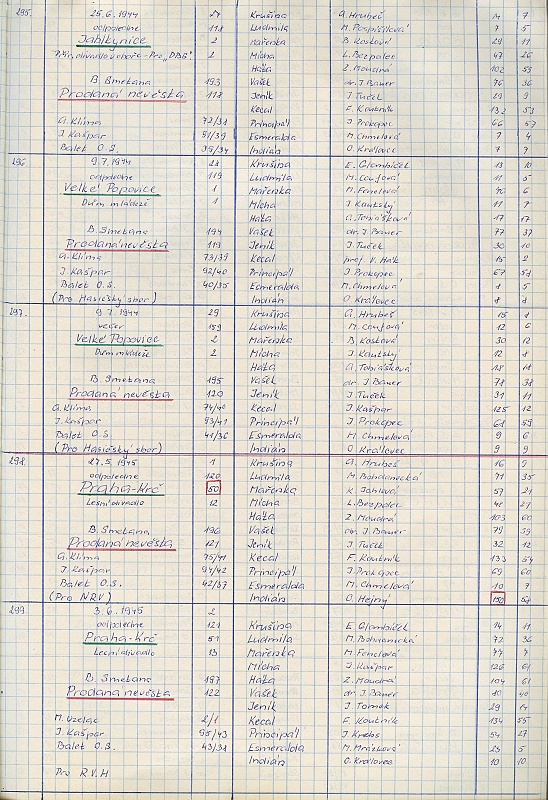 295. 25.6.1944 27 Krušina G. Hrubeš 14 7
odpoledne 118 Ludmila M. Pospíšilová 7 5
Jahlkynice 2 Mařenka B. Kostková 29 11
2 Mícha L. Bezpalec 47 26
Háta Z. Moudrá 102 58
B. Smetana 193 Vašek dr. J. Bauer 76 36
Prodaná nevěsta 118 Jeník J. Tuček 29 9
Kecal F. Koutník 132 53
G. Klíma 72/38 Principál J. Prokopec 66 57
J. Kašpar 91/39 Esmeralda M. Chmelová 7 4
Balet O.S. 39/34 Indián O. Královec 7 7
296 9.7.1944 28 Krušina E. Glombíček 13 10
odpoledne 119 Ludmila M. Coufová 11 5
Velké Popovice 1 Mařenka M. Fenclová 40 6
Dům mládeže 1 Mícha J. Kautský 11 7
Háta G. Tobiášková 17 17
B. Smetana 194 Vašek dr. J. Bauer 77 37
Prodaná nevěsta 119 Jeník J. Tuček 30 10
G. Klíma 73/39 Kecal prof. V. Hák 15 2
J. Kašpar 92/40 Principál J. Prokopec 67 58
Balet O.S. 40/35 Esmeralda M. Chmelová 8 5
(Pro Hasičský sbor) Indián O. Královec 8 8
297. 9.7.1944 29 Krušina G. Hrubeš 15 8
večer 159 Ludmila M. Coufová 12 6
Velké Popovice 2 Mařenka B. Kostková 30 12
Dům mládeže 2 Mícha J. Kautský 12 8
Háta G. Tobiášková 18 18
B. Smetana 195 Vašek dr. J. Bauer 78 38
Prodaná nevěsta 120 Jeník J. Tuček 31 11
G. Klíma 74/40 Kecal J. Kašpar 125 12
J. Kašpar 93/41 Principál J. Prokopec 68 59
Balet O.S. 41/36 Esmeralda M. Chmelová 9 6
(Pro Hasičský sbor) Indián O. Královec 9 9
298. 27.5.1945 1 Krušina G. Hrubeš 16 9
odpoledne 120 Ludmila M. Bohdanecká 71 35
Praha-Krč 50 Mařenka K. Jahlová 57 21
Lesní divadlo 12 Mícha L. Bezpalec 48 27
Háta Z. Moudrá 103 60
B. Smetana 196 Vašek dr. J. Bauer 79 39
Prodaná nevěsta 121 Jeník J. Tuček 32 12
G. Klíma 75/41 Kecal F. Koutník 133 54
J. Kašpar 94/42 Principál J. Prokopec 69 60
Balet O.S. 42/37 Esmeralda M. Chmelová 10 7
(Pro NRV) Indián O. Hejný 150 58
299 3.6.1945 2 Krušina E. Glombíček 14 11
odpoledne 121 Ludmila M. Bohdanecká 72 36
Praha-Krč 51 Mařenka M. Fenclová 47 7
Lesní divadlo 13 Mícha J. Kašpar 126 61
B. Smetana 197 Háta Z. Moudrá 104 61
Prodaná nevěsta 122 Vašek dr. J. Bauer 80 40
Jeník J. Tomek 29 14
M. Uzelac 2/1 Kecal F. Koutník 134 55
J. Kašpar 95/43 Principál J. Krebs 54 27
Balet O.S. 43/38 Esmeralda M. Mrázková 23 5
Indián O. Královec 10 10
Pro R.V.H